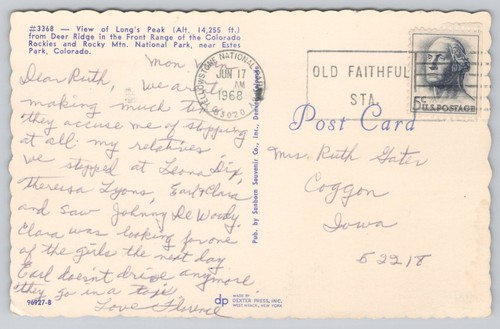 #3368 — View of Long's Peak (Alt. 14,255 ft.)
from Deer Ridge in the Front Range of the Colorado
Rockies and Rocky Mtn. National Park, near Estes
Park, Colorado.
Mon
Dear Ruth, We aren't
making much time
they accuse me of stopping
at all my relatives
we stopped at Leona Dix,
Theresa Lyons, Earl & Clara
and saw Johnny De Woody.
Clara was looking for one
of the girls the next day
Earl doesn't drive anymore
they go in a taxi
Love Florence
96927-B
Pub. by Sanborn Souvenir Co., Inc., Denver,
YELLOWSTONE NATIONAL
JUN 17
AM
1968
83020
OLD FAITHFUL
STA.
5¢
U.S. POSTAGE
Post Card
Mrs. Ruth Gater
Coggon
Iowa
52218
dp
MADE BY
DEXTER PRESS, INC.
WEST NYACK, NEW YORK